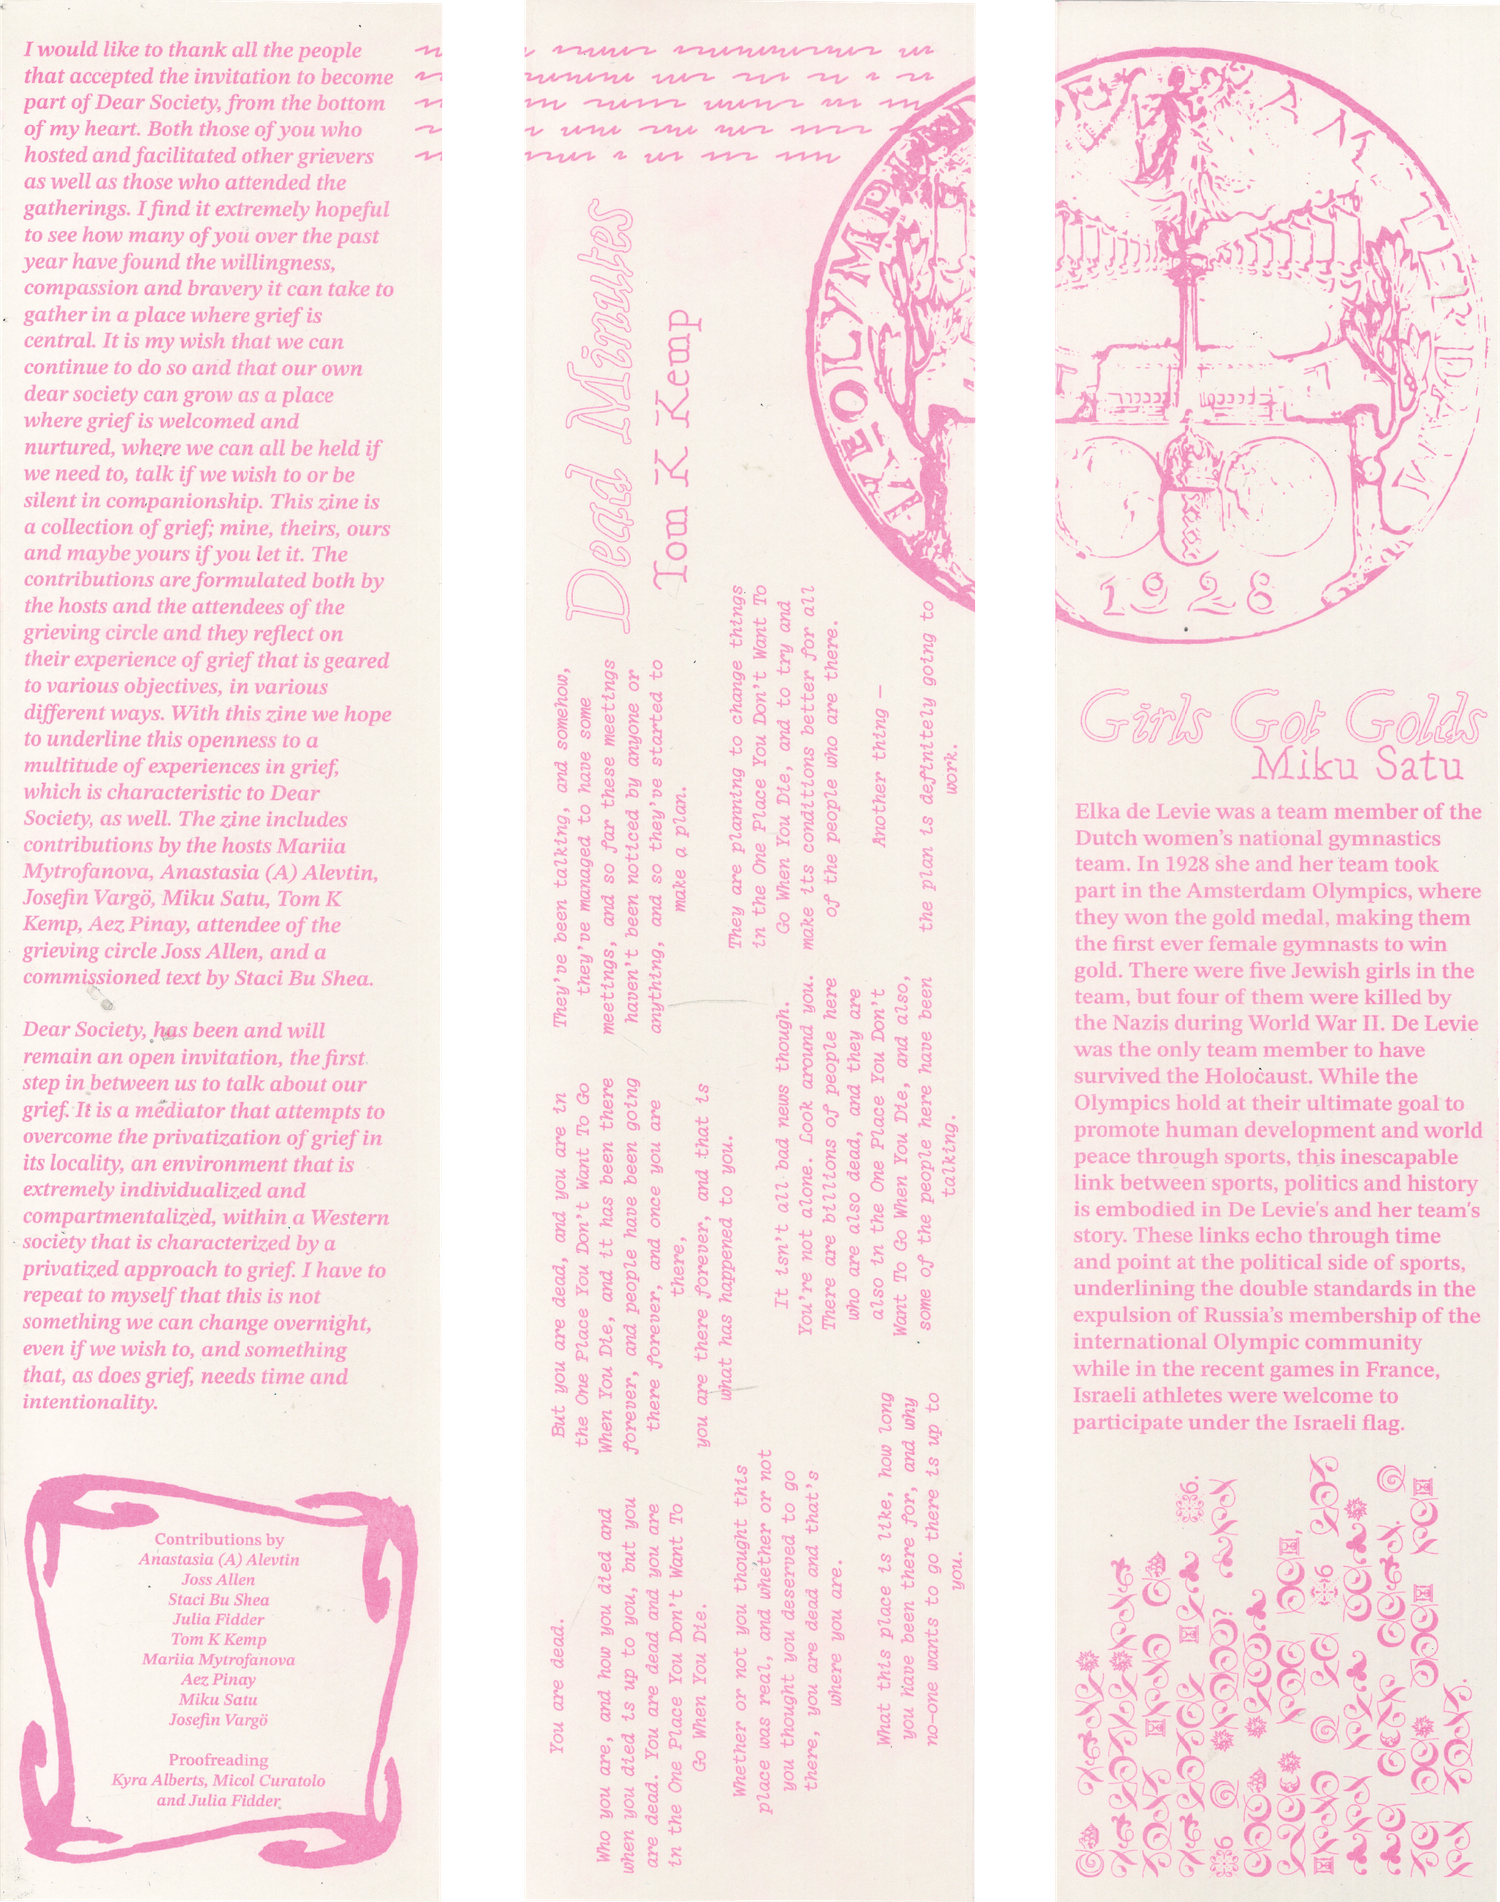 I would like to thank all the people
that accepted the invitation to become
part of Dear Society, from the bottom
of my heart. Both those of you who
hosted and facilitated other grievers
as well as those who attended the
gatherings. I find it extremely hopeful
to see how many of you over the past
year have found the willingness,
compassion and bravery it can take to
gather in a place where grief is
central. It is my wish that we can
continue to do so and that our own
dear society can grow as a place
where grief is welcomed and
nurtured, where we can all be held if
we need to, talk if we wish to or be
silent in companionship. This zine is
a collection of grief; mine, theirs, ours
and maybe yours if you let it. The
contributions are formulated both by
the hosts and the attendees of the
grieving circle and they reflect on
their experience of grief that is geared
to various objectives, in various
different ways. With this zine we hope
to underline this openness to a
multitude of experiences in grief,
which is characteristic to Dear
Society, as well. The zine includes
contributions by the hosts Mariia
Mytrofanova, Anastasia (A) Alevtin,
Josefin Vargö, Miku Satu, Tom K
Kemp, Aez Pinay, attendee of the
grieving circle Joss Allen, and a
commissioned text by Staci Bu Shea.
Dear Society, has been and will
remain an open invitation, the first
step in between us to talk about our
grief. It is a mediator that attempts to
overcome the privatization of grief in
its locality, an environment that is
extremely individualized and
compartmentalized, within a Western
society that is characterized by a
privatized approach to grief. I have to
repeat to myself that this is not
something we can change overnight,
even if we wish to, and something
that, as does grief, needs time and
intentionality.
Contributions by
Anastasia (A) Alevtin
Joss Allen
Staci Bu Shea
Julia Fidder
Tom K Kemp
Mariia Mytrofanova
Aez Pinay
Miku Satu
Josefin Vargö
Proofreading
Kyra Alberts, Micol Curatolo
and Julia Fidder
Dead Minutes
Tom K Kemp
You are dead.
Who you are, and how you died and
when you died is up to you, but you
are dead. You are dead and you are
in the One Place You Don't Want To
Go When You Die.
Whether or not you thought this
place was real, and whether or not
you thought you deserved to go
there, you are dead and that's
where you are.
What this place is like, how long
you have been there for, and why
no-one wants to go there is up to
you.
But you are dead, and you are in
the One Place You Don't Want To Go
When You Die, and it has been there
forever, and people have been going
there forever, and once you are
there,
you are there forever, and that is
what has happened to you.
It isn't all bad news though.
You're not alone. Look around you.
There are billions of people here
who are also dead, and they are
also in the One Place You Don't
Want To Go When You Die, and also,
some of the people here have been
talking.
They've been talking, and somehow,
they've managed to have some
meetings, and so far these meetings
haven't been noticed by anyone or
anything, and so they've started to
make a plan.
They are planning to change things
in the One Place You Don't Want To
Go When You Die, and to try and
make its conditions better for all
of the people who are there.
Another thing —
the plan is definitely going to
work.
1928
Girls Got Golds
Miku Satu
Elka de Levie was a team member of the
Dutch women's national gymnastics
team. In 1928 she and her team took
part in the Amsterdam Olympics, where
they won the gold medal, making them
the first ever female gymnasts to win
gold. There were five Jewish girls in the
team, but four of them were killed by
the Nazis during World War II. De Levie
was the only team member to have
survived the Holocaust. While the
Olympics hold at their ultimate goal to
promote human development and world
peace through sports, this inescapable
link between sports, politics and history
is embodied in De Levie's and her team's
story. These links echo through time
and point at the political side of sports,
underlining the double standards in the
expulsion of Russia's membership of the
international Olympic community
while in the recent games in France,
Israeli athletes were welcome to
participate under the Israeli flag.